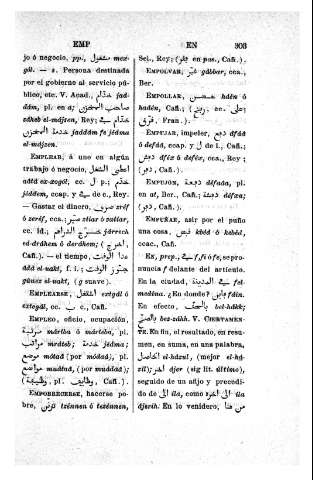 EMP
EN
303
jo ó negocio, pp., مشغول mex-
gûl. — s. Persona destinada
por el gobierno al servicio pú-
blico, etc. V. Acad., خدّام jad-
dâm, pl. en a; صاحب المخزن
sáheb el-májzen, Rey; خدّام في
خدمة المخزن jaddám fe jédma
el-májzen.
EMPLEAR, á uno en algun
trabajo ó negocio, اعطى الشغل
aâtá ex-xogól, cc. ل p.; خدّم
jáddem, ccap. y في de c., Rey.
— Gastar el dinero, صرف sréf
ó zeréf, cca.;
cc. Id.; خسّر الدراهم járrech
ed-dráhem ó deráhem; (اخرج,
Cafi.). — el tiempo, عدا الوقت
âddá el-uakt, f. i.; جوّز الوقت
guúez el-uakt, (g suave).
EMPLEARSE, اشتغل extgál ó
extogál, cc. ب c., Cafi.
EMPLEO, oficio, ocupacion,
مرتبة mártba ó márteba, pl.
مراتب mratéb; خدمة jédma;
موضع motád (por módaâ), pl.
مواضع muátad, (por muádaâ);
(وظيفة, pl. وظايف, Cafi.).
EMPOBRECERSE, hacerse po-
bre, تزنن tzénnen ó tezénnen,
Sel., Rey; (فتر en pas., Cafi.).
EMPOLVAR, غبّر gábber, cca.,
Ber.
EMPOLLAR, حضن hdén ó
hadén, Cafi.; (ربّى, cc. على;
قرق, Fran.).
EMPUJAR, impeler, دفع dfáâ
ó defáâ, ccap. y ل de i., Cafi.;
دفع dfáâ ó defáâ, cca., Rey;
(دز, Cafi.).
EMPUJÓN, دفعة défaâa, pl.
en at, Ber., Cafi.; (دفاع dzáza;
دزة, Cafi.).
EMPUÑAR, asir por el puño
una cosa, قبض kbéd ó kebéd,
ccac., Cafi.
EN, prep., في f, fi ó fe, se pro-
nuncia f delante del artículo.
En la ciudad, في المدينة fel-
medína. ¿En donde? فاين fáin.
En efecto, بالحق bel-hákk;
بالصح bez-zahh. V. CIERTAMEN-
TE. En fin, el resultado, en resu-
men, en suma, en una palabra,
الحاصل el-házul, (mejor el-há-
zil); اخر djer (sig lit. último),
seguido de un algo y precedi-
do de الى ila, como الى اخر ila
djerih. En lo venidero, من هنا